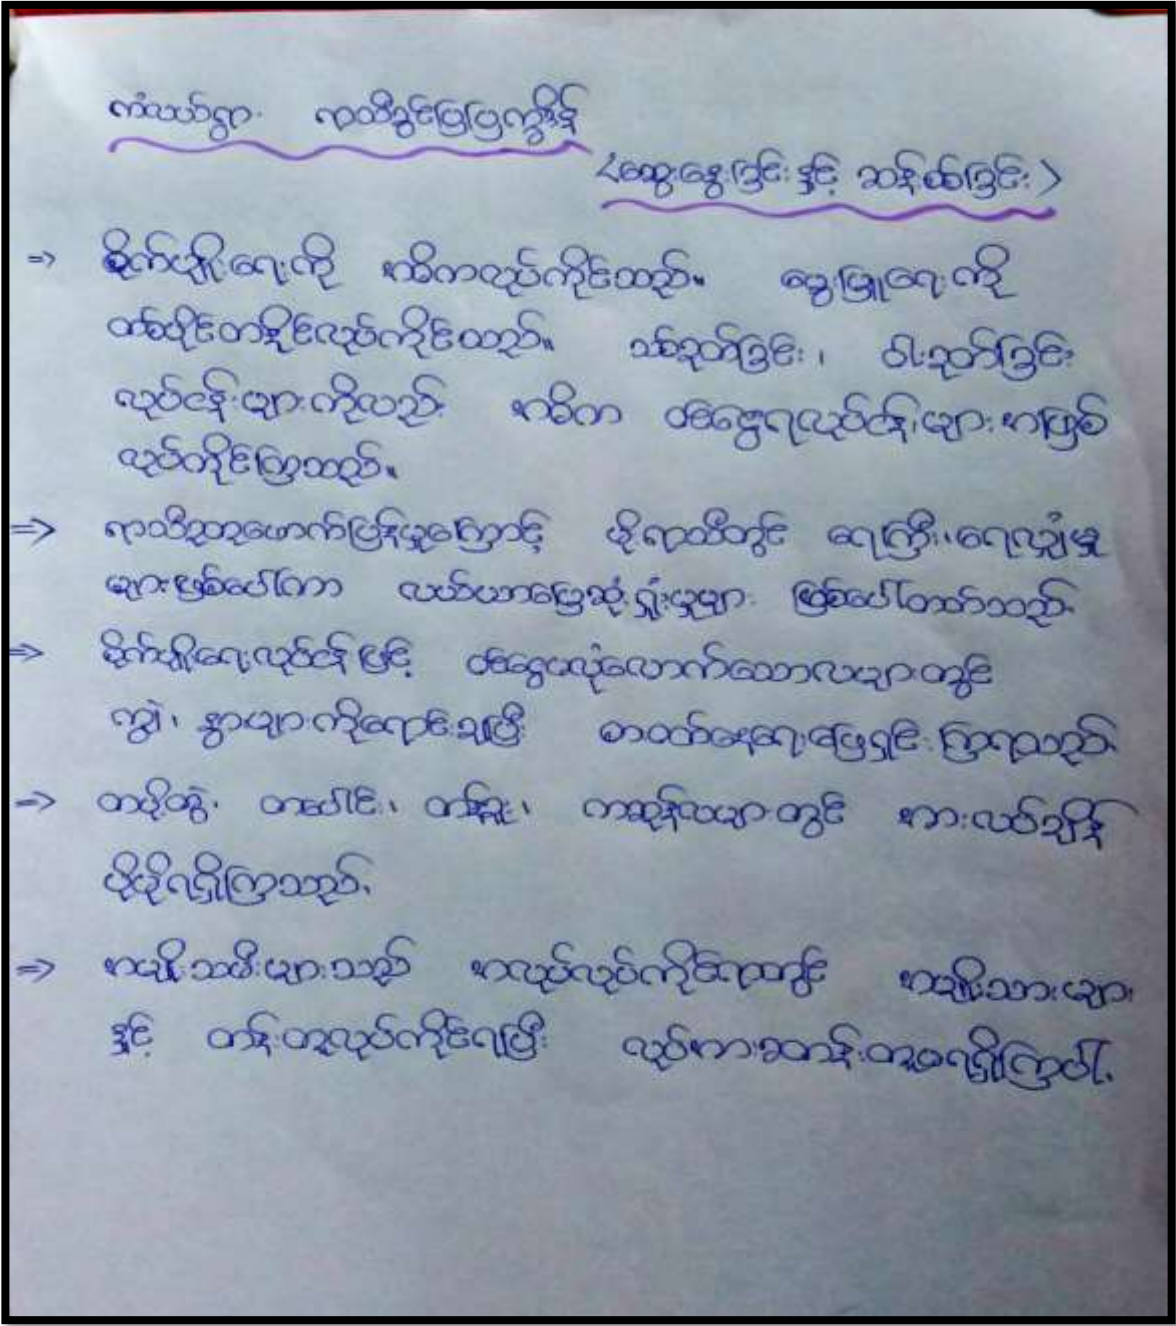 ကံလယ်ရွာ ရာသီခွင်ပြပြက္ခဒိန်
<ဆွေးနွေးခြင်းနှင့် ဆန်းစစ်ခြင်း>
⇒ စိုက်ပျိုးရေးကို အဓိကလုပ်ကိုင်သည်။ မွေးမြူရေးကို
တစ်ပိုင်တစ်နိုင်လုပ်ကိုင်သည်။ သစ်ခုတ်ခြင်း၊ ဝါးခုတ်ခြင်း
လုပ်ငန်းများကိုလည်း အဓိက ဝင်ငွေရလုပ်ငန်းများအဖြစ်
လုပ်ကိုင်ကြသည်။
⇒ ရာသီဥတုဖောက်ပြန်မှုကြောင့် မိုးရာသီတွင် ရေကြီး၊ရေလျှံမှု
များဖြစ်ပေါ်ကာ လယ်ယာမြေဆုံးရှုံးမှုများ ဖြစ်ပေါ်တတ်သည်
⇒ စိုက်ပျိုးရေးလုပ်ငန်းဖြင့် ဝင်ငွေမလုံလောက်သောလများတွင်
ကျွဲ၊ နွားများကိုရောင်းချပြီး စားဝတ်နေရေးဖြေရှင်းကြရသည်
⇒ တပို့တွဲ၊ တပေါင်း၊ တန်ခူး၊ ကဆုန်လများတွင် အားလပ်ချိန်
ပိုမိုရရှိကြသည်.
⇒ အမျိုးသမီးများသည် အလုပ်လုပ်ကိုင်ရာတွင် အမျိုးသားများ
နှင့် တန်းတူလုပ်ကိုင်ရပြီး လုပ်အားခတန်းတူမရရှိကြပါ.